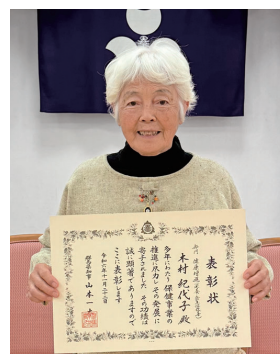 表彰状
木村 紀代子 殿
多年にわたり 保健事業の
推進に尽力しその発展に
寄与されました その功績は
誠に顕著でありますので
ここに表彰します
令和六年十一月二十二日
山本 一